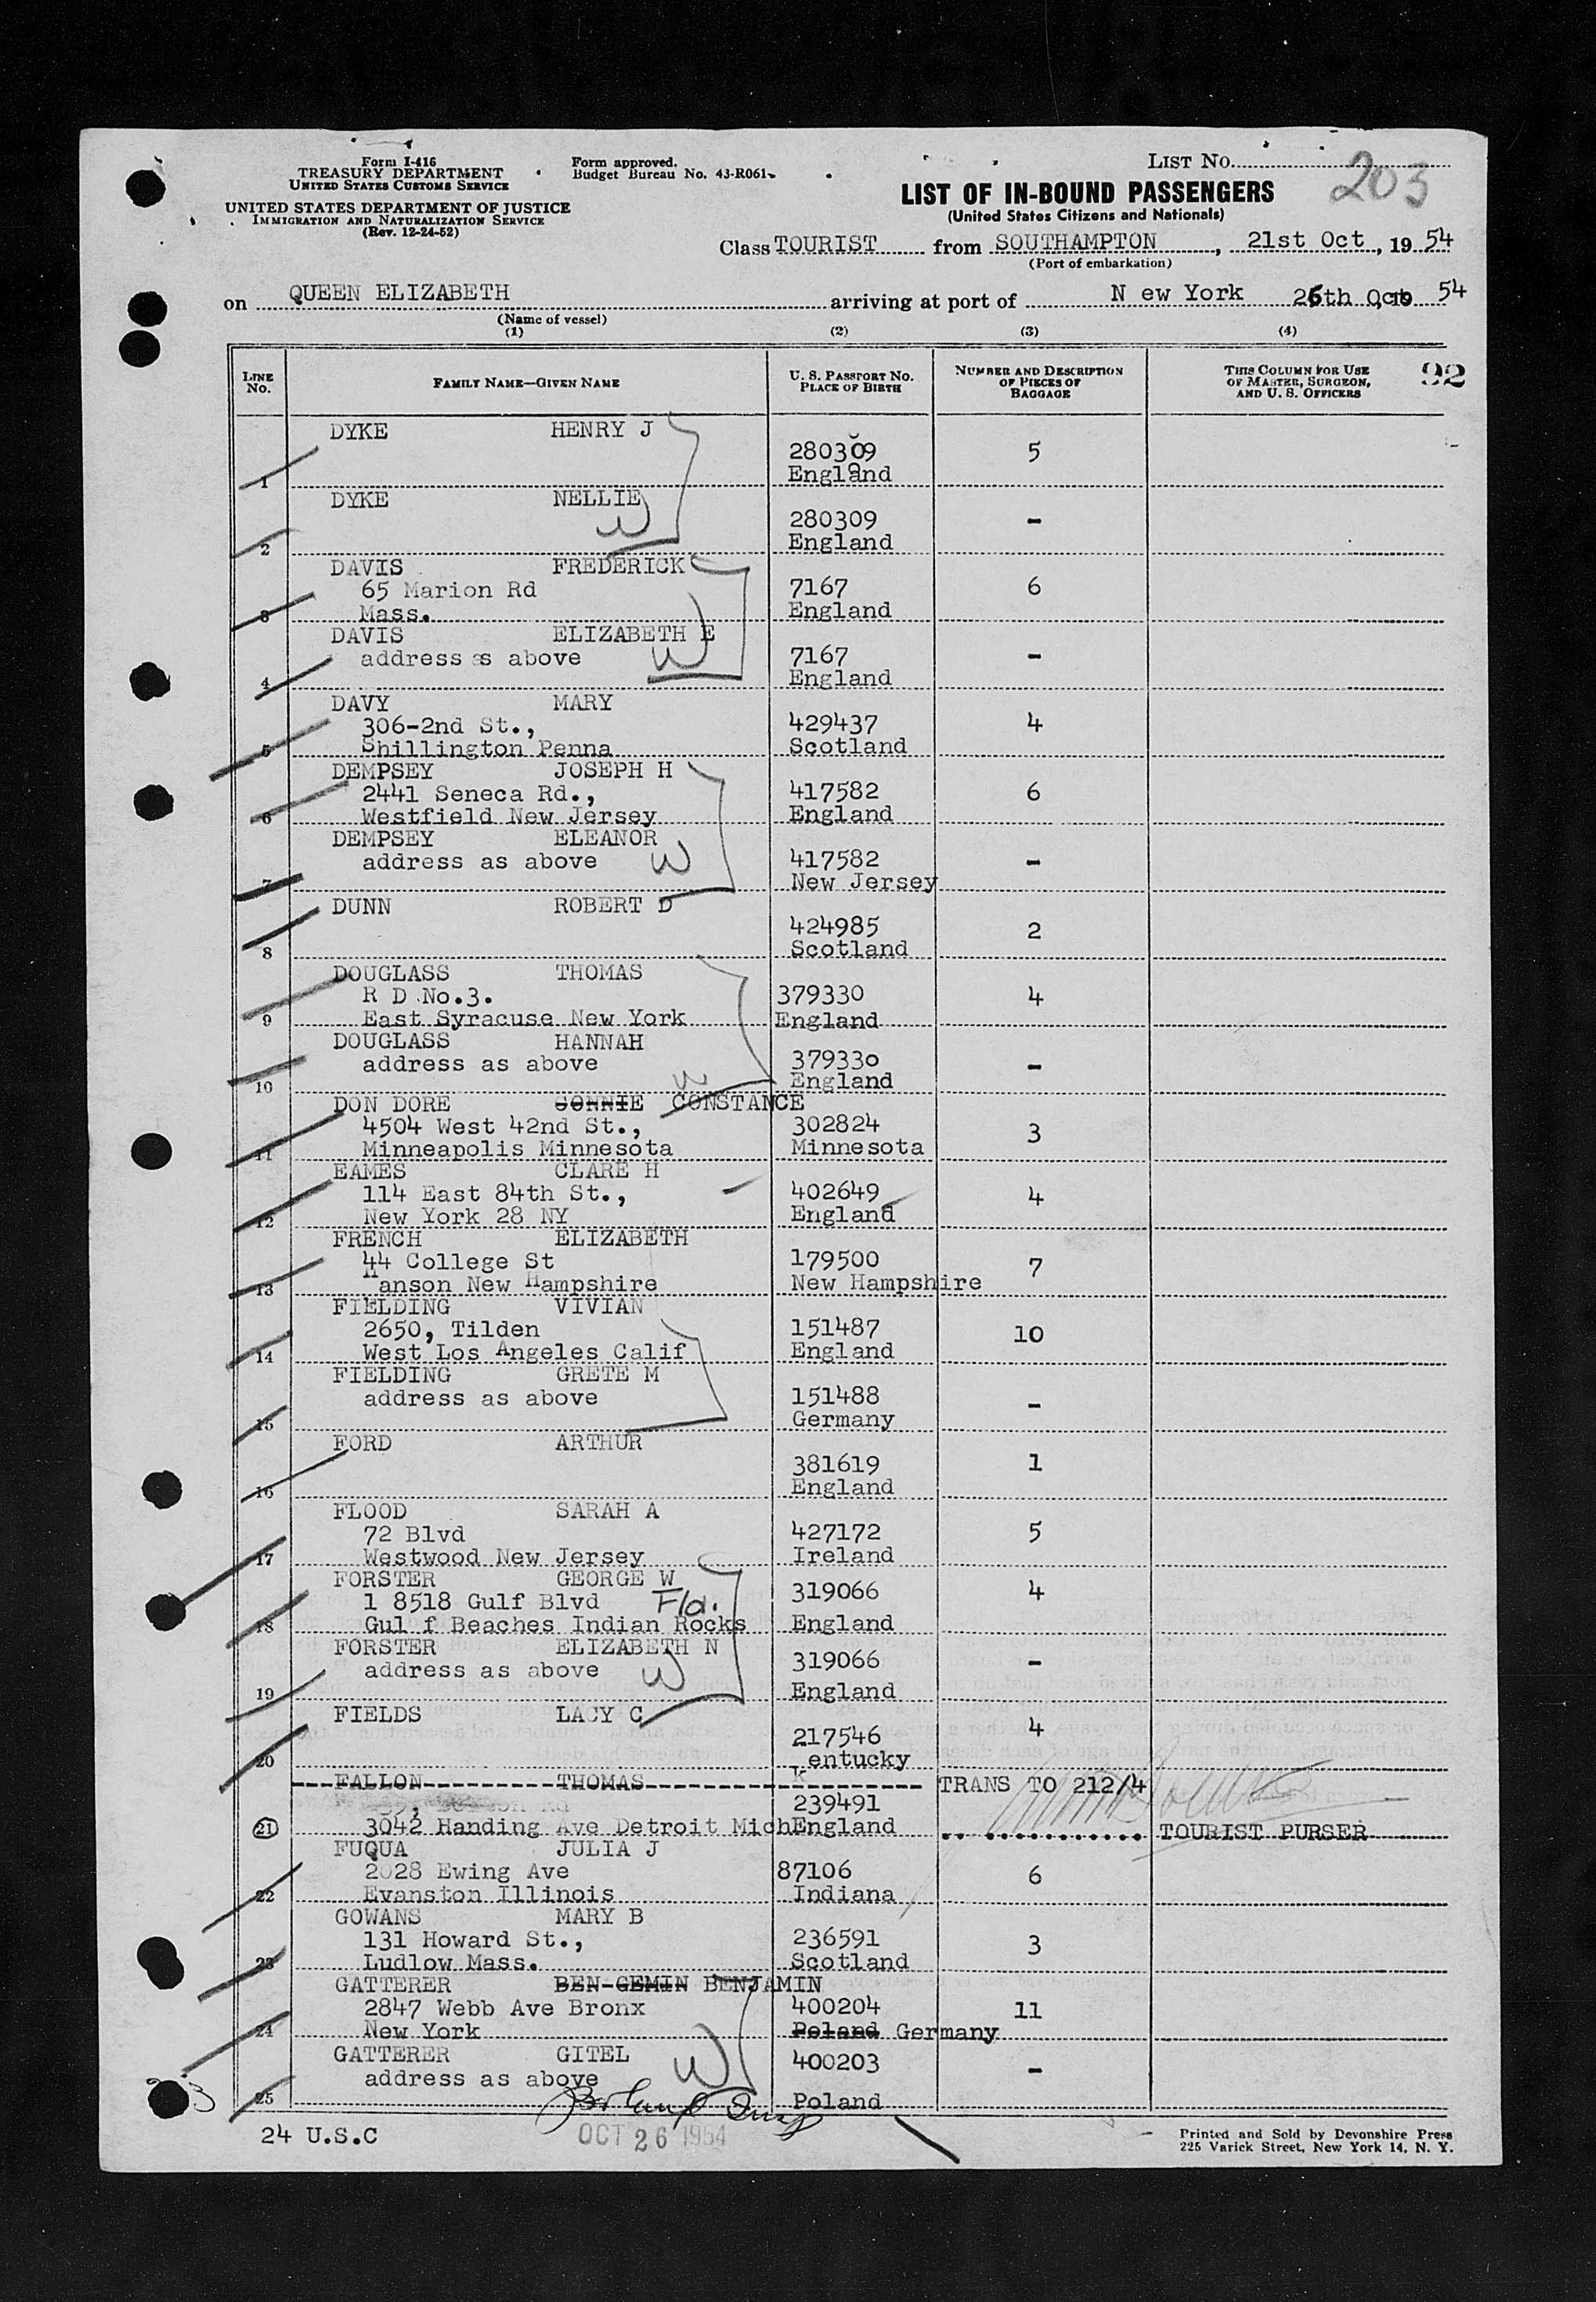 Form I-416
TREASURY DEPARTMENT
UNITED STATES CUSTOMS SERVICE
UNITED STATES DEPARTMENT OF JUSTICE
IMMIGRATION AND NATURALIZATION SERVICE
(Rev. 12-24-52)
Form approved.
Budget Bureau No. 43-R061
LIST NO. 203
LIST OF IN-BOUND PASSENGERS
(United States Citizens and Nationals)
Class TOURIST from SOUTHAMPTON, 21st Oct, 19 54
(Port of embarkation)
on QUEEN ELIZABETH arriving at port of N ew York 26th Oct 19 54
(Name of vessel)
(1) (2) (3) (4)
LINE NO. FAMILY NAME—GIVEN NAME U. S. PASSPORT NO. PLACE OF BIRTH NUMBER AND DESCRIPTION OF PIECES OF BAGGAGE THIS COLUMN FOR USE OF MASTER, SURGEON, AND U. S. OFFICERS 92
DYKE HENRY J
280309 5
1 England
DYKE NELLIE
W 280309 -
2 England
DAVIS FREDERICK
65 Marion Rd 7167 6
3 Mass. England
DAVIS ELIZABETH E
address as above W 7167 -
4 England
DAVY MARY
306-2nd St., 429437 4
5 Shillington Penna Scotland
DEMPSEY JOSEPH H
2441 Seneca Rd., 417582 6
6 Westfield New Jersey England
DEMPSEY ELEANOR
address as above W 417582 -
7 New Jersey
DUNN ROBERT D
424985 2
8 Scotland
DOUGLASS THOMAS
R D No.3. 379330 4
9 East Syracuse New York England
DOUGLASS HANNAH
address as above 379330 -
10 W England
DON DORE CONNIE CONSTANCE
4504 West 42nd St., 302824 3
11 Minneapolis Minnesota Minnesota
EAMES CLARE H
114 East 84th St., 402649 4
12 New York 28 NY England
FRENCH ELIZABETH
44 College St 179500 7
13 Hanson New Hampshire New Hampshire
FIELDING VIVIAN
2650, Tilden 151487 10
14 West Los Angeles Calif England
FIELDING GRETE M
address as above 151488 -
15 Germany
FORD ARTHUR
381619 1
16 England
FLOOD SARAH A
72 Blvd 427172 5
17 Westwood New Jersey Ireland
FORSTER GEORGE W
1 8518 Gulf Blvd Fla. 319066 4
18 Gul f Beaches Indian Rocks England
FORSTER ELIZABETH N
address as above W 319066 -
19 England
FIELDS LACY C
217546 4
20 Kentucky
FALLON THOMAS TRANS TO 212/4
239491
21 3042 Handing Ave Detroit Mich England TOURIST PURSER
FUQUA JULIA J
2028 Ewing Ave 87106 6
22 Evanston Illinois Indiana
GOWANS MARY B
131 Howard St., 236591 3
23 Ludlow Mass. Scotland
GATTERER BEN-GEMIN BENJAMIN
2847 Webb Ave Bronx 400204 11
24 New York Poland Germany
GATTERER GITEL
address as above W 400203 -
25 Poland
24 U.S.C
OCT 26 1954
Printed and Sold by Devonshire Press
225 Varick Street, New York 14, N. Y.